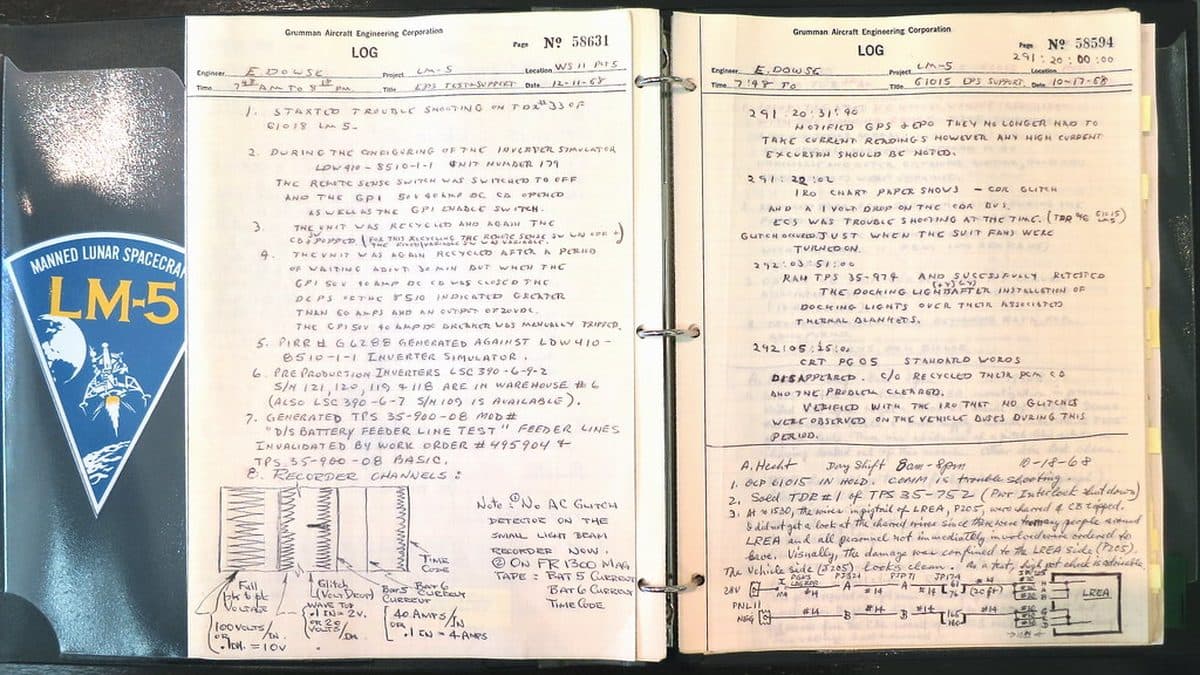 MANNED LUNAR SPACECRAF
LM-5
Grumman Aircraft Engineering Corporation
LOG
Page Nº 58631
Engineer E. DOWSE Project LM-5 Location WS 11 Pt 5
Time 7 AM TO 8 PM. Title EPS TEST SUPPORT Date 12-11-68
1. STARTED TROUBLE SHOOTING ON TDR #33 OF
61018 LM 5.
2. DURING THE CONFIGURING OF THE INVERTER SIMULATOR
LDW 410 - 8510-1-1 UNIT NUMBER 179
THE REMOTE SENSE SWITCH WAS SWITCHED TO OFF
AND THE GPI 50V 40 AMP DC CB OPENED
AS WELL AS THE GPI ENABLE SWITCH.
3. THE UNIT WAS RECYCLED AND AGAIN THE
CB POPPED (FOR THIS RECYCLING THE REMOTE SENSE SW ON
THE FIXED/VARIABLE SW ON VARIABLE.)
4. THE UNIT WAS AGAIN RECYCLED AFTER A PERIOD
OF WAITING ABOUT 30 MIN BUT WHEN THE
GPI 50V 40 AMP DC CB WAS CLOSED THE
DCPS OF THE 8510 INDICATED GREATER
THAN 60 AMPS AND AN OUTPUT OF 20VDC.
THE GPI 50V 40 AMP DC BREAKER WAS MANUALLY TRIPPED.
5. PIRR # G6288 GENERATED AGAINST LDW 410 -
8510-1-1 INVERTER SIMULATOR.
6. PREPRODUCTION INVERTERS LSC 390-6-9-2
S/N 121, 120, 119 & 118 ARE IN WAREHOUSE #6
(ALSO LSC 390-6-7 S/N 109 IS AVAILABLE).
7. GENERATED TPS 35-900-08 MOD #
"D/S BATTERY FEEDER LINE TEST" FEEDER LINES
INVALIDATED BY WORK ORDER #495904 &
TPS 35-900-08 BASIC.
8. RECORDER CHANNELS:
Note: ① No AC GLITCH
DETECTOR ON THE
SMALL LIGHT BEAM
RECORDER NOW.
② ON FR 1300 MAG
TAPE: BAT 5 CURRENT
BAT 6 CURRENT
TIME CODE
TIME
CODE
BAT 6
CURRENT
BAT 5
CURRENT
Glitch
(Volt Drop)
Full
pk to pk
VOLTAGE
WAVE TOP
.1 IN = 2V.
OR 20
VOLTS/IN
40 AMPS/IN
OR
.1 IN = 4 AMPS
100 VOLTS/IN.
OR
.1 IN. = 10V
Grumman Aircraft Engineering Corporation
LOG
Page Nº 58594
291:20:00:00
Engineer E. DOWSE Project LM-5 Location
Time 7:48 To Title 61015 EPS SUPPORT Date 10-17-68
291:20:31:90
NOTIFIED GPS & EPO THEY NO LONGER HAD TO
TAKE CURRENT READINGS HOWEVER ANY HIGH CURRENT
EXCURSION SHOULD BE NOTED.
291:22:02
IRO CHART PAPER SHOWS - CDR GLITCH
AND A 1 VOLT DROP ON THE CDR BUS.
ECS WAS TROUBLE SHOOTING AT THE TIME. (TDR 61015 LM-5)
GLITCH OCCURED JUST WHEN THE SUIT FANS WERE
TURNED ON.
292:03:51:00
RAN TPS 35-974 AND SUCCESSFULLY RETESTED
THE DOCKING LIGHTS AFTER INSTALLATION OF
DOCKING LIGHTS OVER THEIR ASSOCIATED
THERMAL BLANKETS.
292:05:15:0
CRT PG 05 STANDARD WORDS
DISAPPEARED. C/O RECYCLED THEIR PCM CB
AND THE PROBLEM CLEARED.
VERIFIED WITH THE IRO THAT NO GLITCHES
WERE OBSERVED ON THE VEHICLE BUSES DURING THIS
PERIOD.
A. Hecht Day Shift 8am - 8pm 10-18-68
1. OCP 61015 IN HOLD. COMM is trouble shooting.
2. Sold TDR #1 of TPS 35-752 (Pwr. Interlock shut down)
3. At ≈ 1530, the wires in pigtail of LREA, P205, were charred & CB tripped.
I did not get a look at the charred wires since there were too many people around
LREA and all personnel not immediately involved were ordered to
leave. Visually, the damage was confined to the LREA side (P205).
The Vehicle side (J205) looks clean. As a test, high pot check is advisable.
28V
PNL 11
NEG
#14 #14 #14 (20 ft) #14
LREA